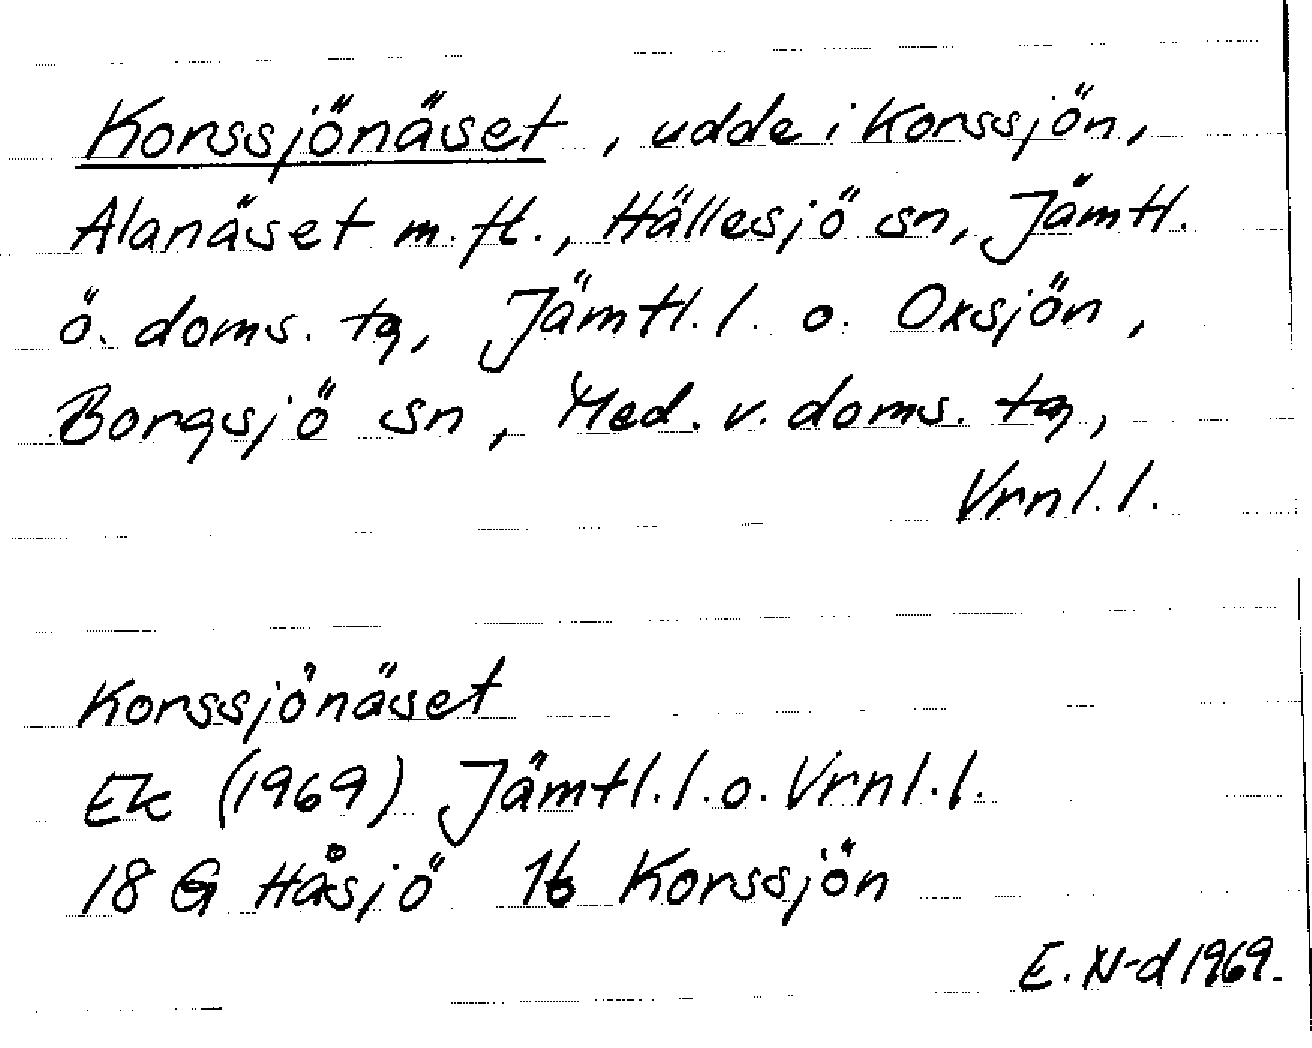 Korssjönäset, udde i Korssjön,
Alanäset m. fl., Hällesjö sn, Jämtl.
ö. doms. tg, Jämtl. l. o. Oxsjön,
Borgsjö sn, Med. v. doms. tg,
Vrnl. l.
Korssjönäset
Ek (1969) Jämtl. l. o. Vrnl. l.
18 G Håsjö 1b Korssjön
E. N-d 1969.